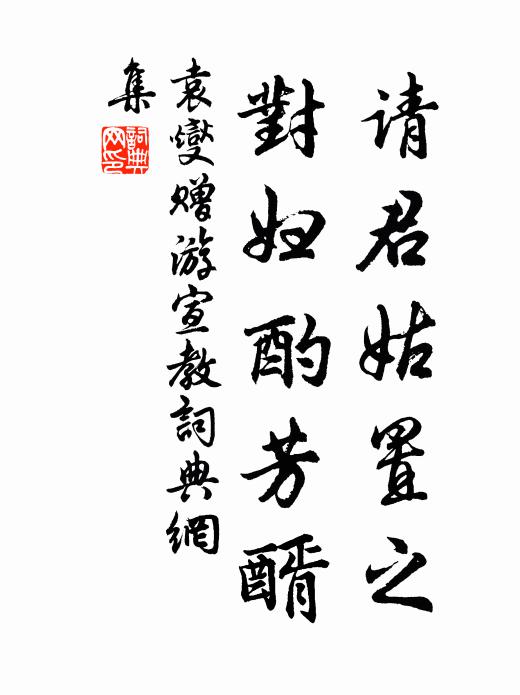 请君姑置之
對妲酌芳醑
袁燮赠游宣教詞典網
集
詞典網印